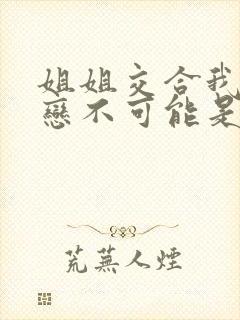 姐姐交合我
戀不可能是
荒蕪人煙